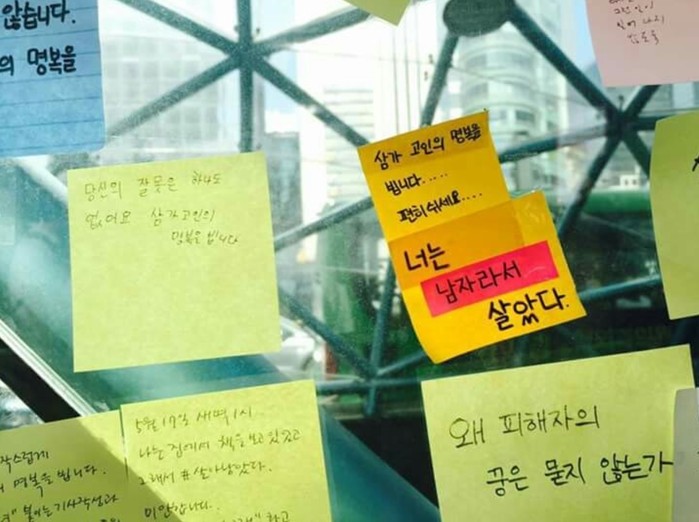 않습니다.
의 명복을
당신의 잘못은 하나도
없어요 삼가고인의
명복을 빕니다
삼가 고인의 명복을
빕니다.....
편히쉬세요....
너는
남자라서
살았다.
작스럽게
명복을 빕니다.
5월 17일 새벽 1시.
나는 집에서 책을 보고 있었고
그래서 #살아남았다.
미안합니다.
왜 피해자의
꿈은 묻지 않는가